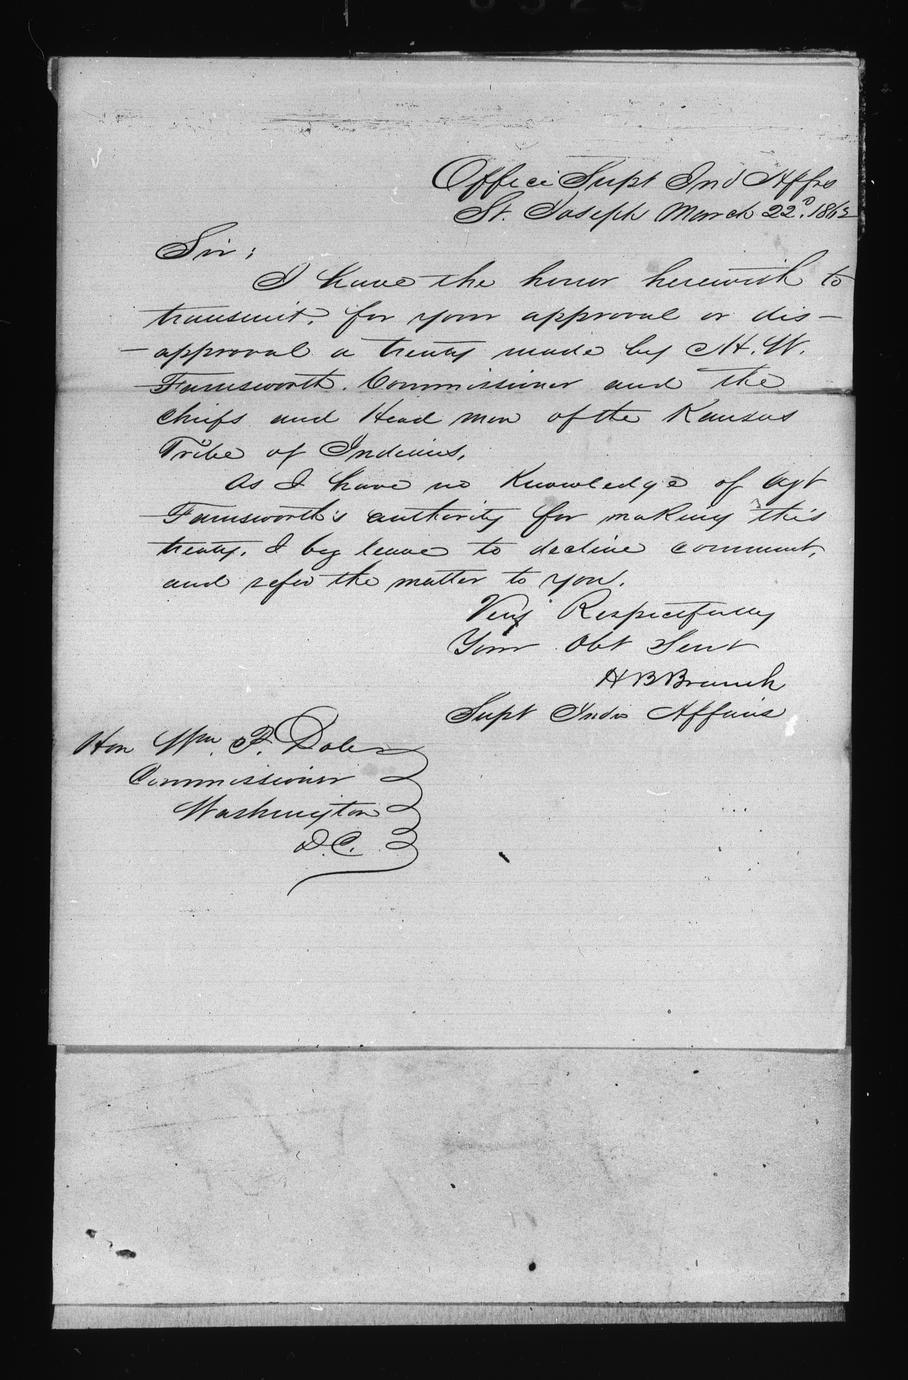 Office Supt Ind Affrs
St. Joseph March 22d. 1862
Sir;
I have the honor herewith to
transmit, for your approval or dis-
-approval a treaty made by H. W.
Farnsworth. Commissioner and the
Chiefs and Head men of the Kansas
Tribe of Indians.
As I have no Knowledge of Agt
Farnsworth's authority for making this
treaty, I beg leave to decline comment,
and refer the matter to you.
Very Respectfully
Your Obt Servt
H B Branch
Supt Inds Affairs
Hon Wm. P. Dole
Commissioner
Washington
D.C.